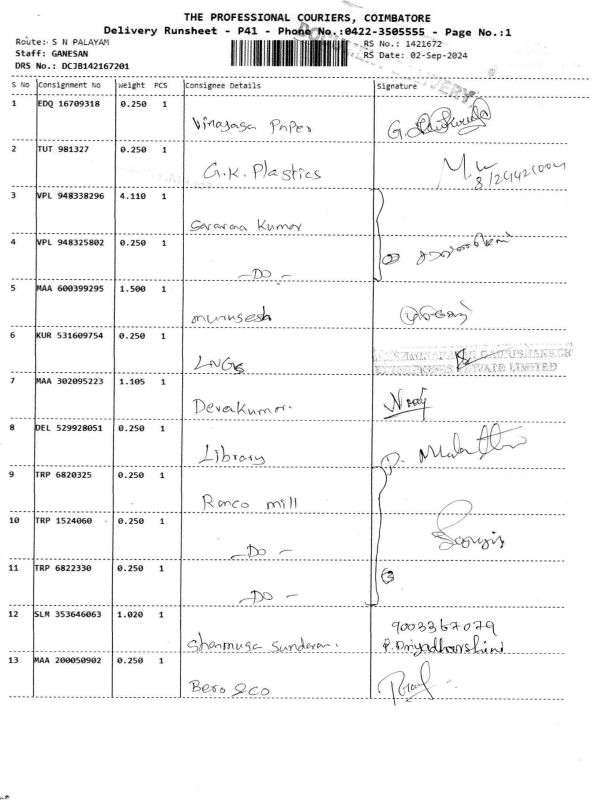 THE PROFESSIONAL COURIERS, COIMBATORE
Delivery Runsheet - P41 - Phone No.:0422-3505555 - Page No.:1
Route: S N PALAYAM
RS No.: 1421672
Staff: GANESAN
RS Date: 02-Sep-2024
DRS No.: DCJB142167201
S No Consignment No Weight PCS Consignee Details Signature
1 EDQ 16709318 0.250 1
Vinayaga Paper G.
2 TUT 981327 0.250 1
G.K. Plastics
3 VPL 948338296 4.110 1
Saravana Kumar
4 VPL 948325802 0.250 1
- DO -
5 MAA 600399295 1.500 1
murugesh
6 KUR 531609754 0.250 1
LNGS
PRIVATE LIMITED
7 MAA 302095223 1.105 1
Devakumar.
8 DEL 529928051 0.250 1
Library
9 TRP 6820325 0.250 1
Ranco mill
10 TRP 1524060 0.250 1
- DO -
11 TRP 6822330 0.250 1
③
- DO -
12 SLM 353646063 1.020 1
9003367079
Shanmuga Sundaram. P. Priyadharshini
13 MAA 200050902 0.250 1
Bero & co